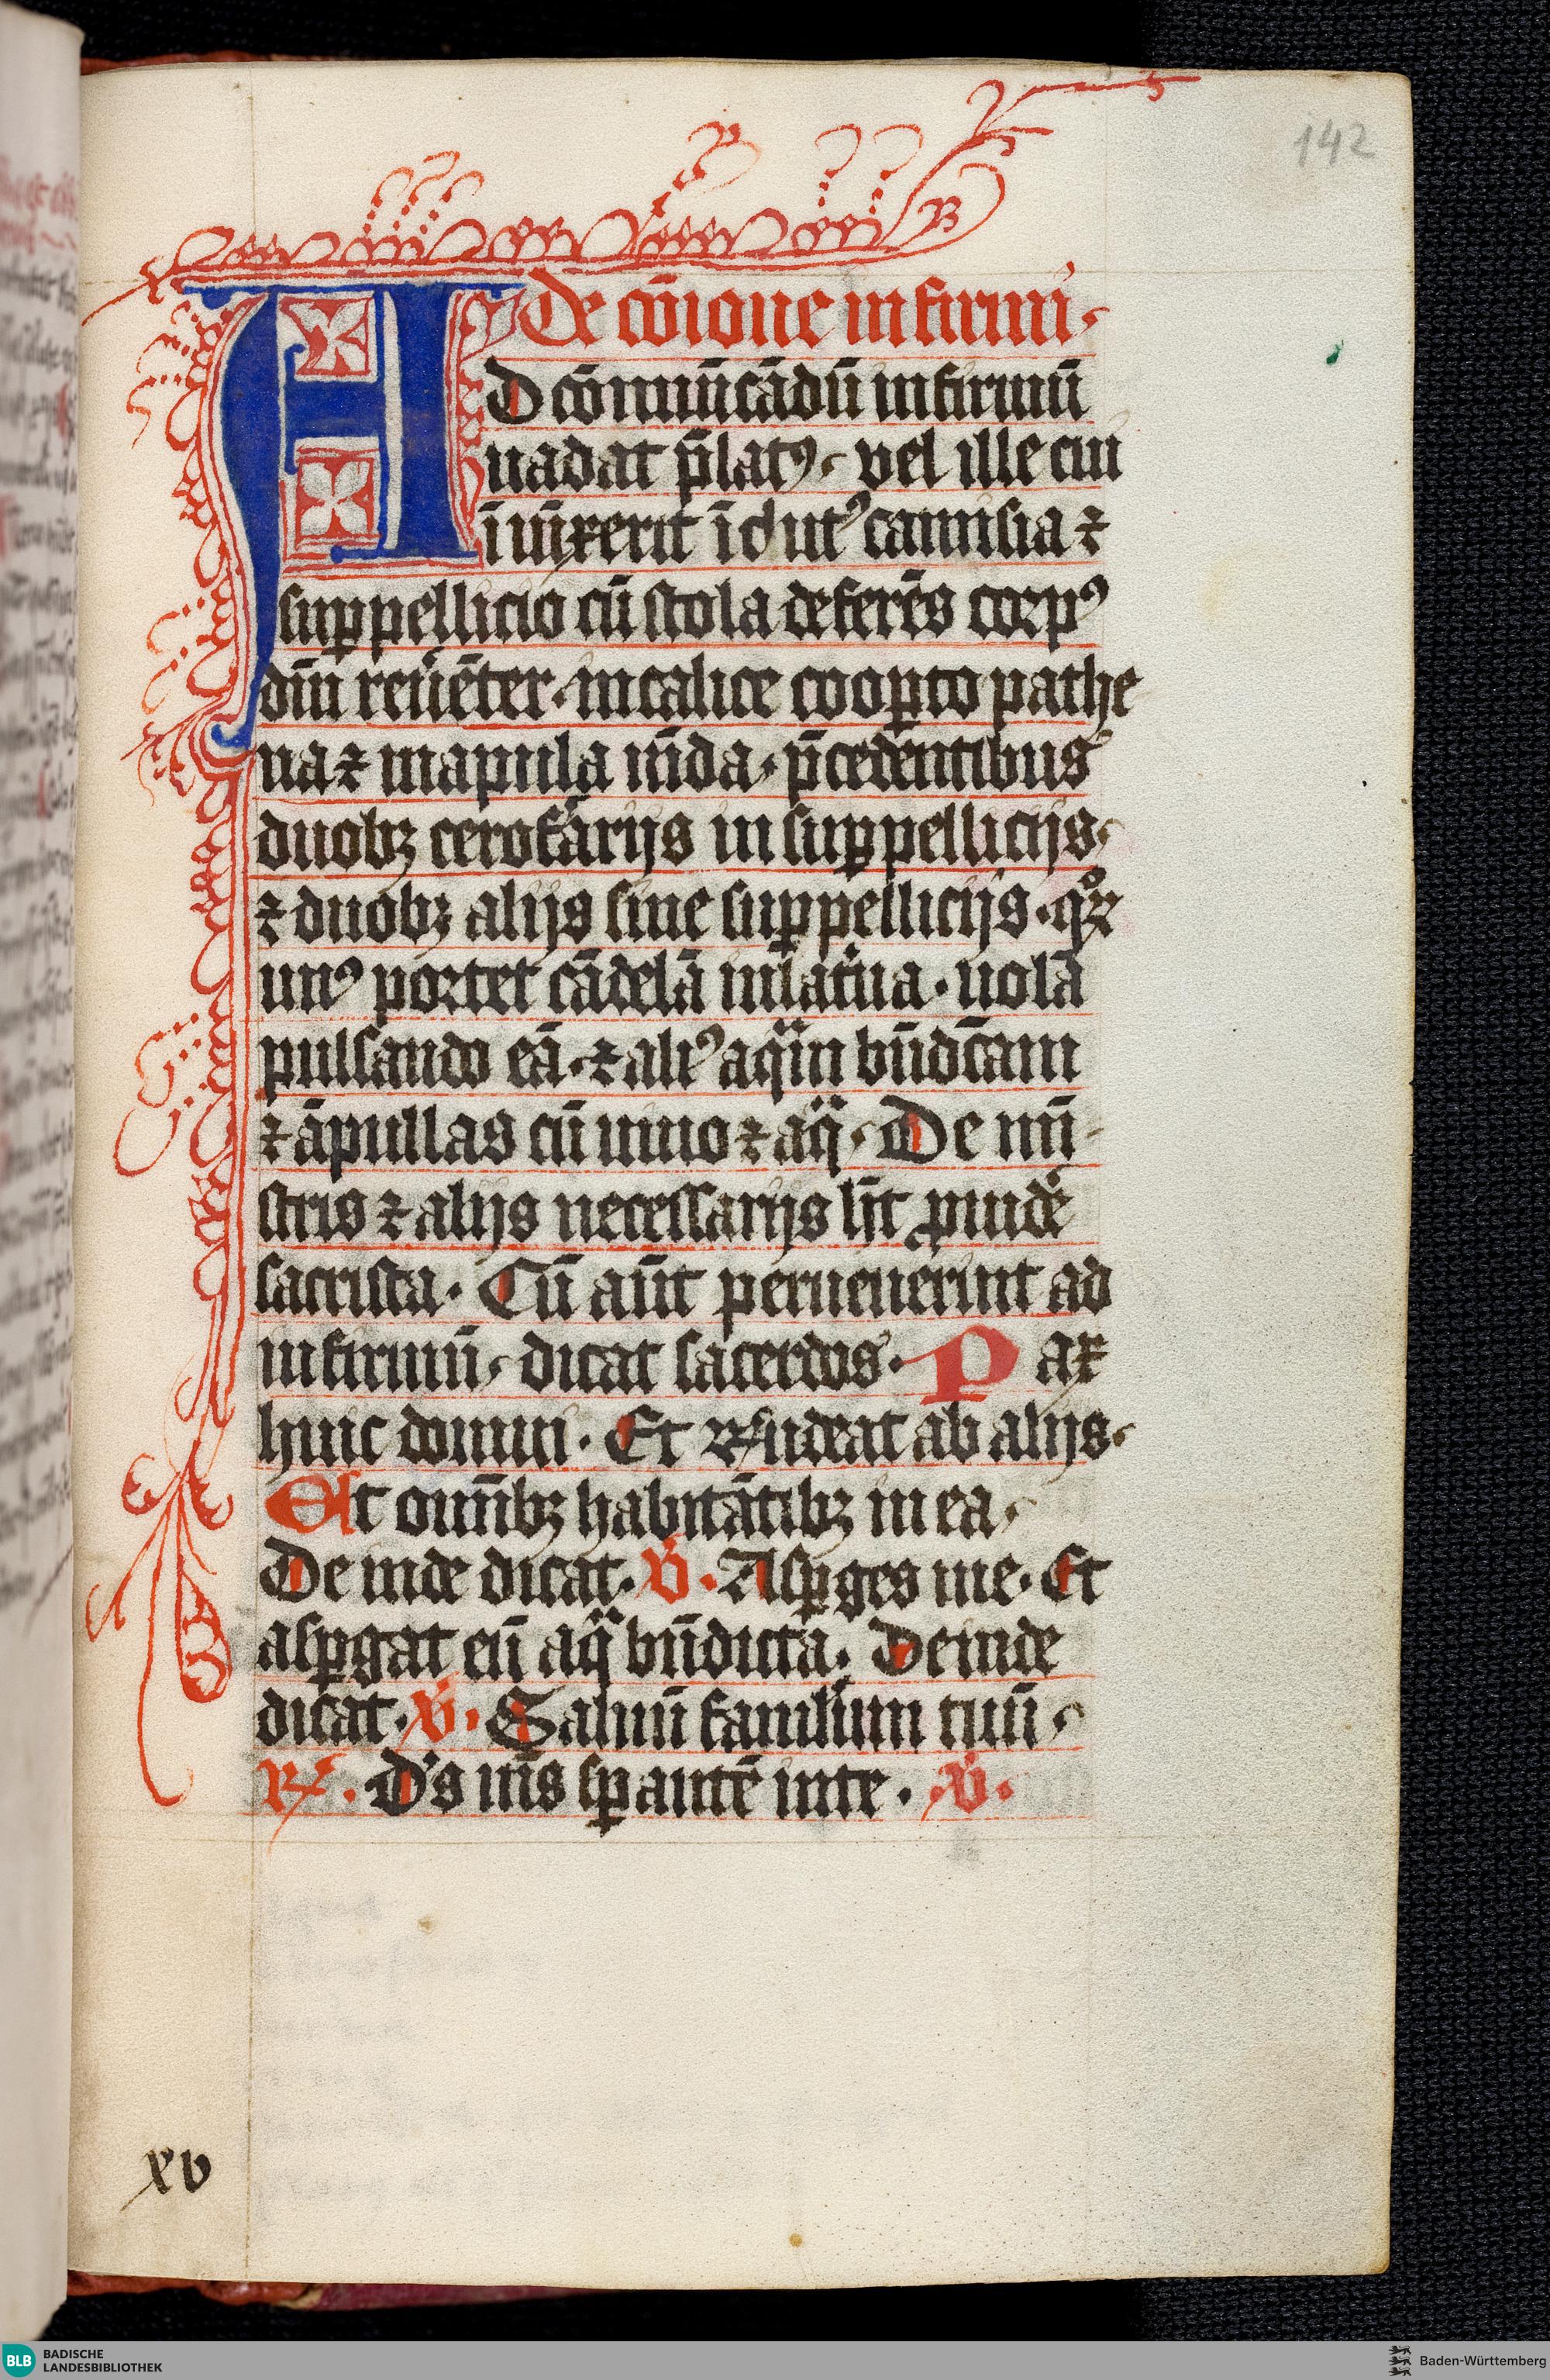 142
De cōione infirmi
AD cōmunicādū infirmū
uadat p̄latꝰ. vel ille cui
īiūxerit īdutꝰ camisia ⁊
suꝑpellicio cū stola deferēs corpꝰ
dn̄i reuēter. in calice cooꝑto pathe
na ⁊ mapula mūda. p̄cedentibus
duobꝫ cerofarijs in suꝑpellicijs.
⁊ duobꝫ alijs sine suꝑpellicijs. qͦꝝ
unꝰ portet cādelā in lat̾na. nolā
pulsando eā. ⁊ aliꝰ aqͣm bn̄dc̄am
⁊ āpullas cū uino ⁊ aqͣ. De mī
stris ⁊ alijs necessarijs hꝫt ꝓuide̾
sacrista. Cū aūt peruenerint ad
infirmū. dicat sacerdos. Pax
huic domui. Et rn̄deat ab alijs.
Est om̄ibꝫ habitātibꝫ in ea.
Deinde dicat. ℣. Asꝑges me. Et
asꝑgat eū aqͣ bn̄dicta. Deinde
dicat. ℣. Saluū famulum tuū.
℟. D's ms̄ sꝑantē in te. ℣.
xv
BLB BADISCHE
LANDESBIBLIOTHEK
Baden-Württemberg